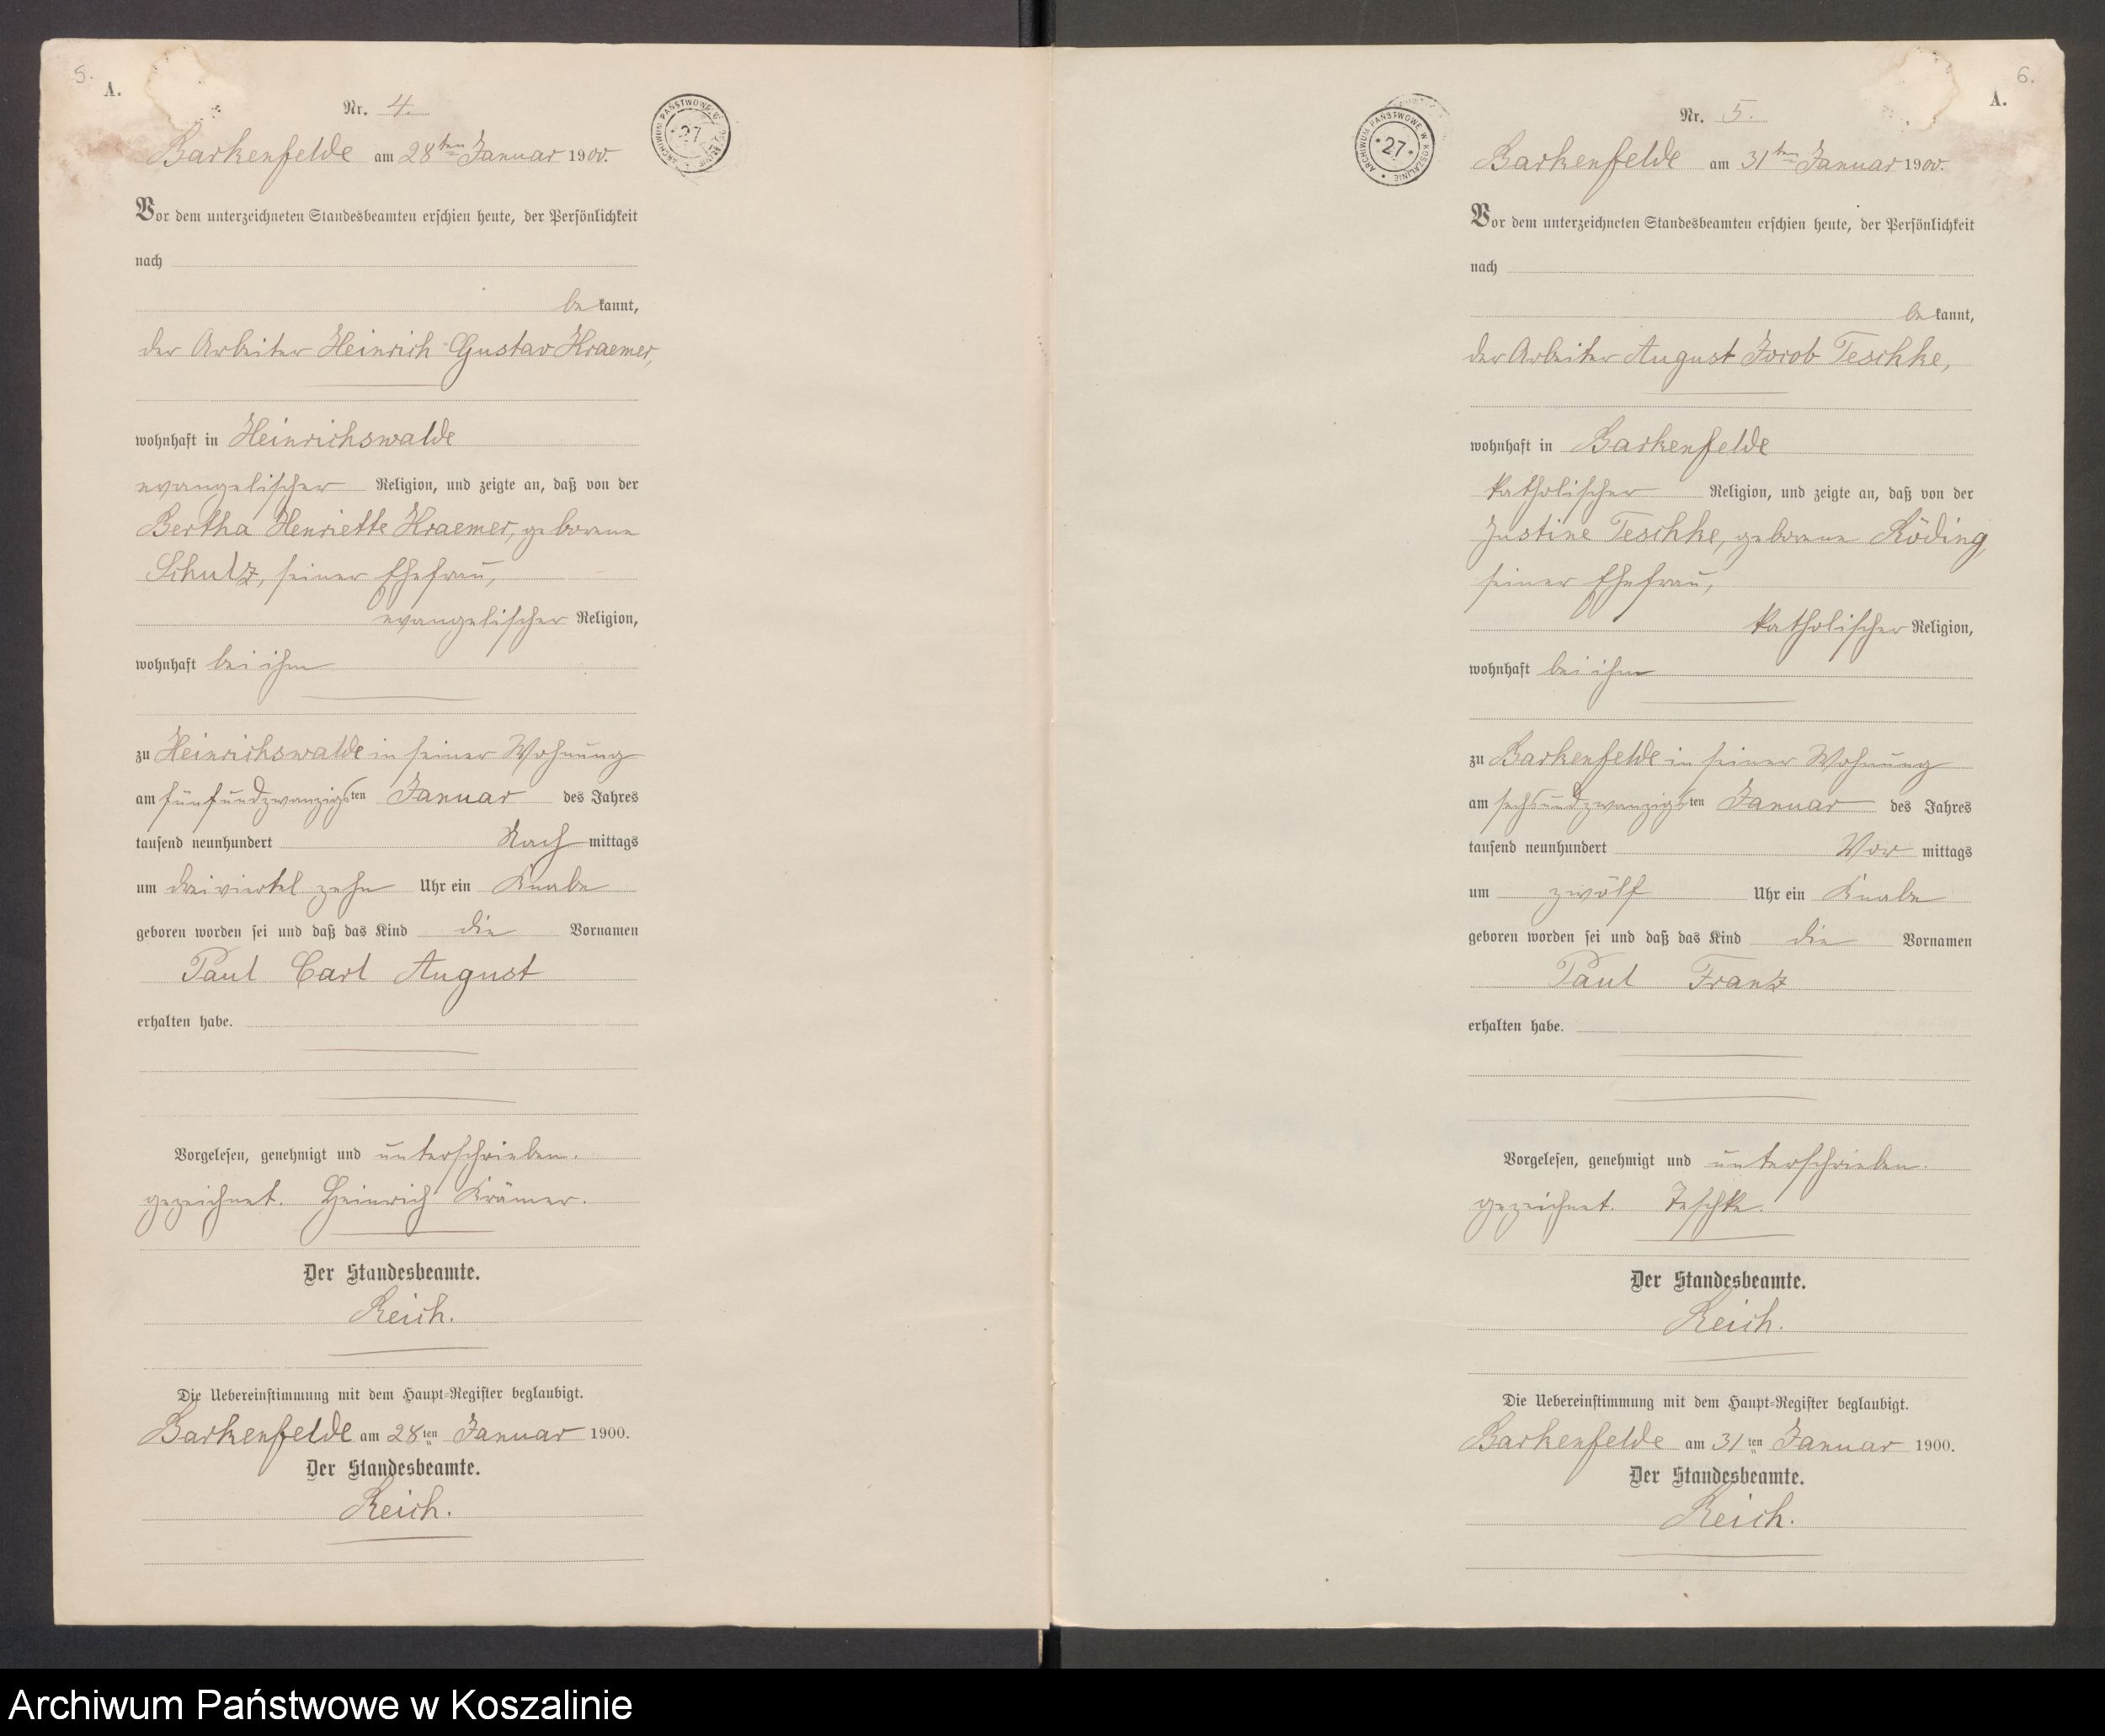 5.
A.
Nr. 4.
Barkenfelde am 28ten Januar 1900.
Vor dem unterzeichneten Standesbeamten erschien heute, der Persönlichkeit
nach
be kannt,
der Arbeiter Heinrich Gustav Kraemer,
wohnhaft in Heinrichswalde
evangelischer Religion, und zeigte an, daß von der
Bertha Henriette Kraemer, geborene
Schulz, seiner Ehefrau,
evangelischer Religion,
wohnhaft bei ihm
zu Heinrichswalde in seiner Wohnung
am fünfundzwanzigsten Januar des Jahres
tausend neunhundert Nach mittags
um dreiviertel zehn Uhr ein Knabe
geboren worden sei und daß das Kind die Vornamen
Paul Carl August
erhalten habe.
Vorgelesen, genehmigt und unterschrieben.
gezeichnet. Heinrich Krämer.
Der Standesbeamte.
Reich.
Die Uebereinstimmung mit dem Haupt=Register beglaubigt.
Barkenfelde am 28ten Januar 1900.
Der Standesbeamte.
Reich.
ARCHIWUM PAŃSTWOWE W KOSZALINIE
27
ARCHIWUM PAŃSTWOWE W KOSZALINIE
27
6.
A.
Nr. 5.
Barkenfelde am 31ten Januar 1900.
Vor dem unterzeichneten Standesbeamten erschien heute, der Persönlichkeit
nach
be kannt,
der Arbeiter August Jacob Teschke,
wohnhaft in Barkenfelde
katholischer Religion, und zeigte an, daß von der
Justine Teschke, geborene Röding,
seiner Ehefrau,
katholischer Religion,
wohnhaft bei ihm
zu Barkenfelde in seiner Wohnung
am sechsundzwanzigsten Januar des Jahres
tausend neunhundert Vor mittags
um zwölf Uhr ein Knabe
geboren worden sei und daß das Kind die Vornamen
Paul Franz
erhalten habe.
Vorgelesen, genehmigt und unterschrieben.
gezeichnet. Teschke.
Der Standesbeamte.
Reich.
Die Uebereinstimmung mit dem Haupt=Register beglaubigt.
Barkenfelde am 31ten Januar 1900.
Der Standesbeamte.
Reich.
Archiwum Państwowe w Koszalinie